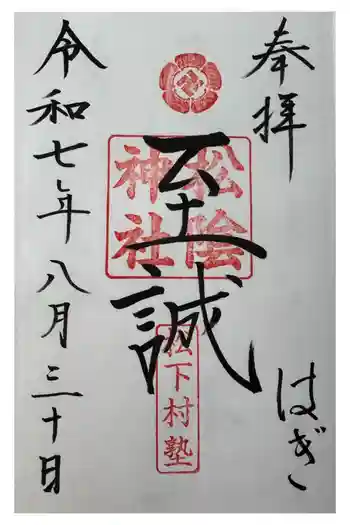 奉拝
はぎ
松陰
神社
至誠
松下村塾
令和七年八月三十日